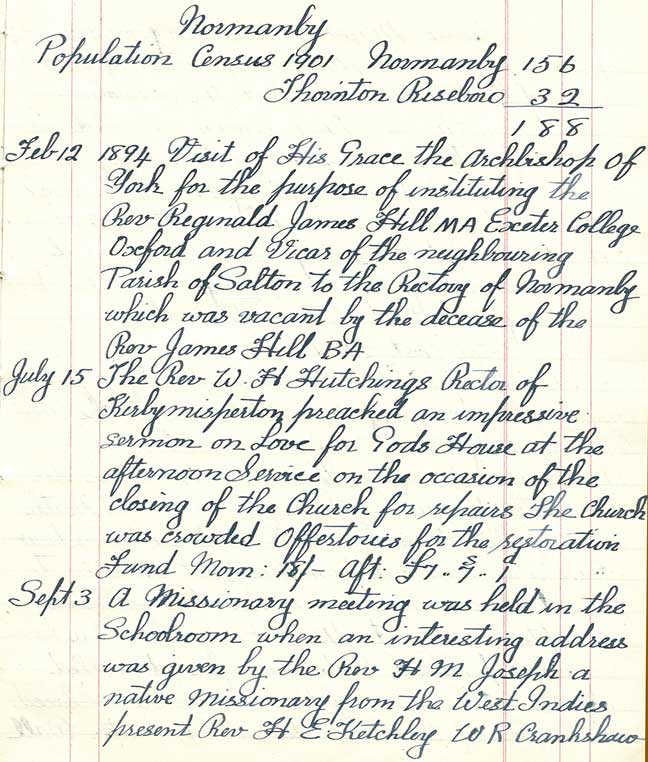 Normanby
Population Census 1901 Normanby 156
Thornton Riseboro 32
188
Feb 12 1894 Visit of His Grace the Archbishop of
York for the purpose of instituting the
Rev Reginald James Hill MA Exeter College
Oxford and Vicar of the neighbouring
Parish of Salton to the Rectory of Normanby
which was vacant by the decease of the
Rev James Hill BA
July 15 The Rev W. H Hutchings Rector of
Kirbymisperton preached an impressive
sermon on Love for Gods House at the
afternoon Service on the occasion of the
closing of the Church for repairs The Church
was crowded Offertories for the restoration
Fund Morn: 18/- Aft: £7.. s7.. d1
Sept 3 A Missionary meeting was held in the
Schoolroom when an interesting address
was given by the Rev H M Joseph a
native Missionary from the West Indies
present Rev H E Ketchley W R Crankshaw